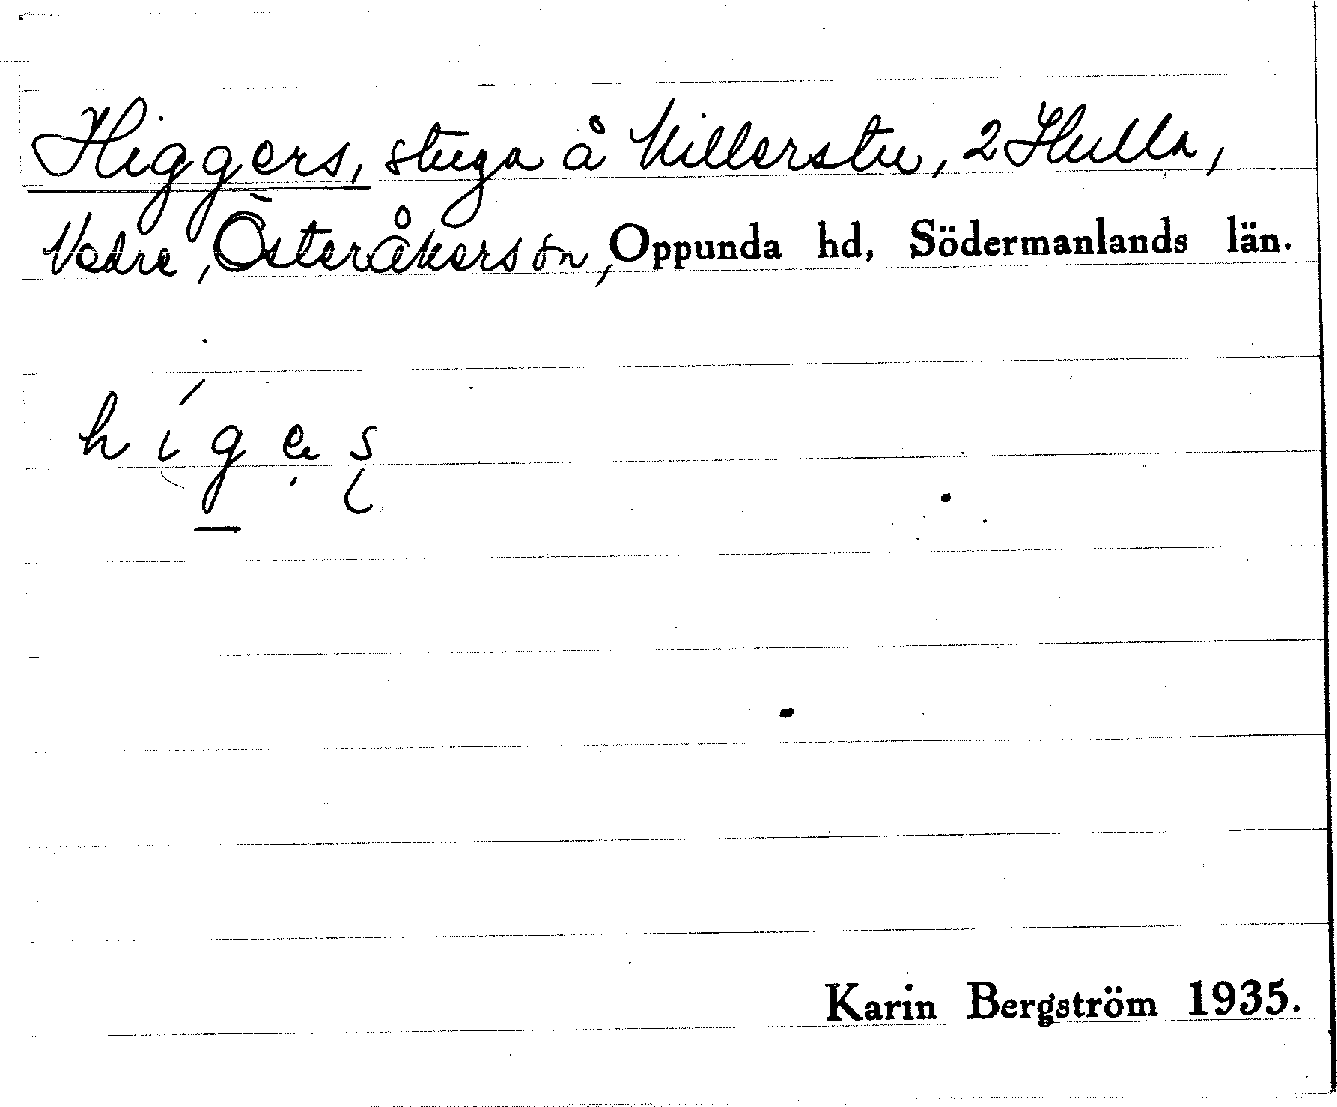 Higgers, stuga å Millerstu, 2 Hulla,
Vadre, Österåkers sn, Oppunda hd, Södermanlands län.
hígɐs̨
Karin Bergström 1935.